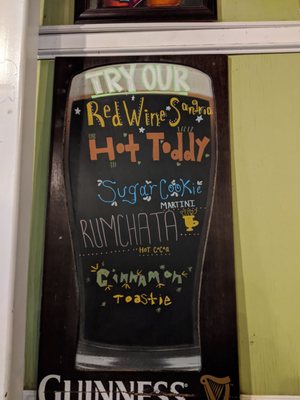 TRY OUR
Red Wine Sangria
Hot Toddy
Sugar Cookie
MARTINI
RUMCHATA
HOT COCOA
Cinnamon
Toastie
GUINNESS